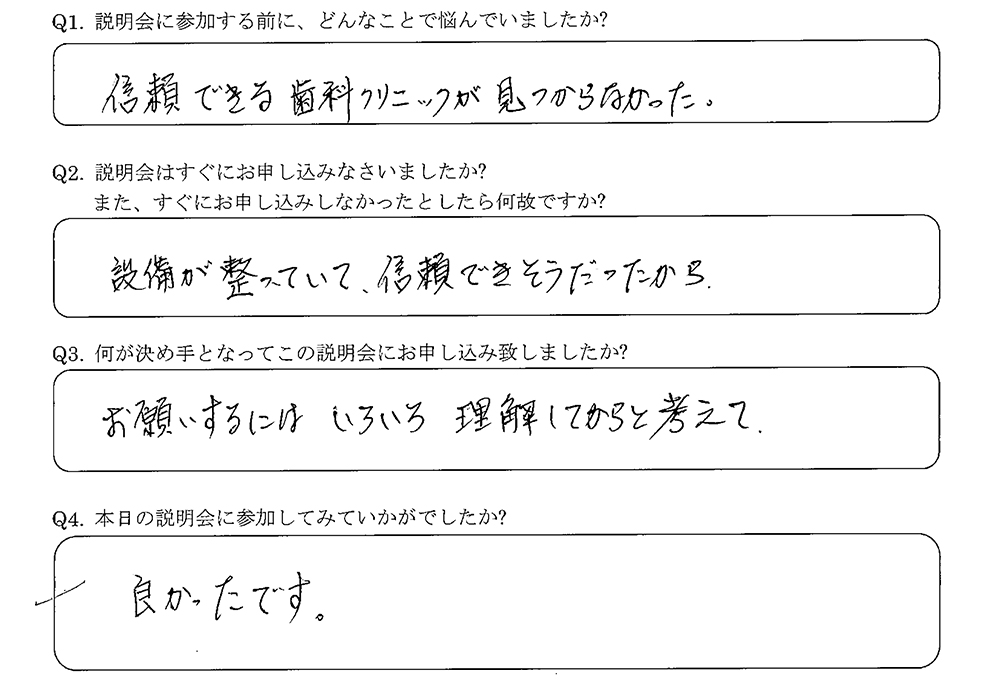 Q1. 説明会に参加する前に、どんなことで悩んでいましたか?
信頼できる歯科クリニックが見つからなかった。
Q2. 説明会はすぐにお申し込みなさいましたか?
また、すぐにお申し込みしなかったとしたら何故ですか?
設備が整っていて、信頼できそうだったから.
Q3. 何が決め手となってこの説明会にお申し込み致しましたか?
お願いするには いろいろ 理解してからと考えて.
Q4. 本日の説明会に参加してみていかがでしたか?
良かったです。